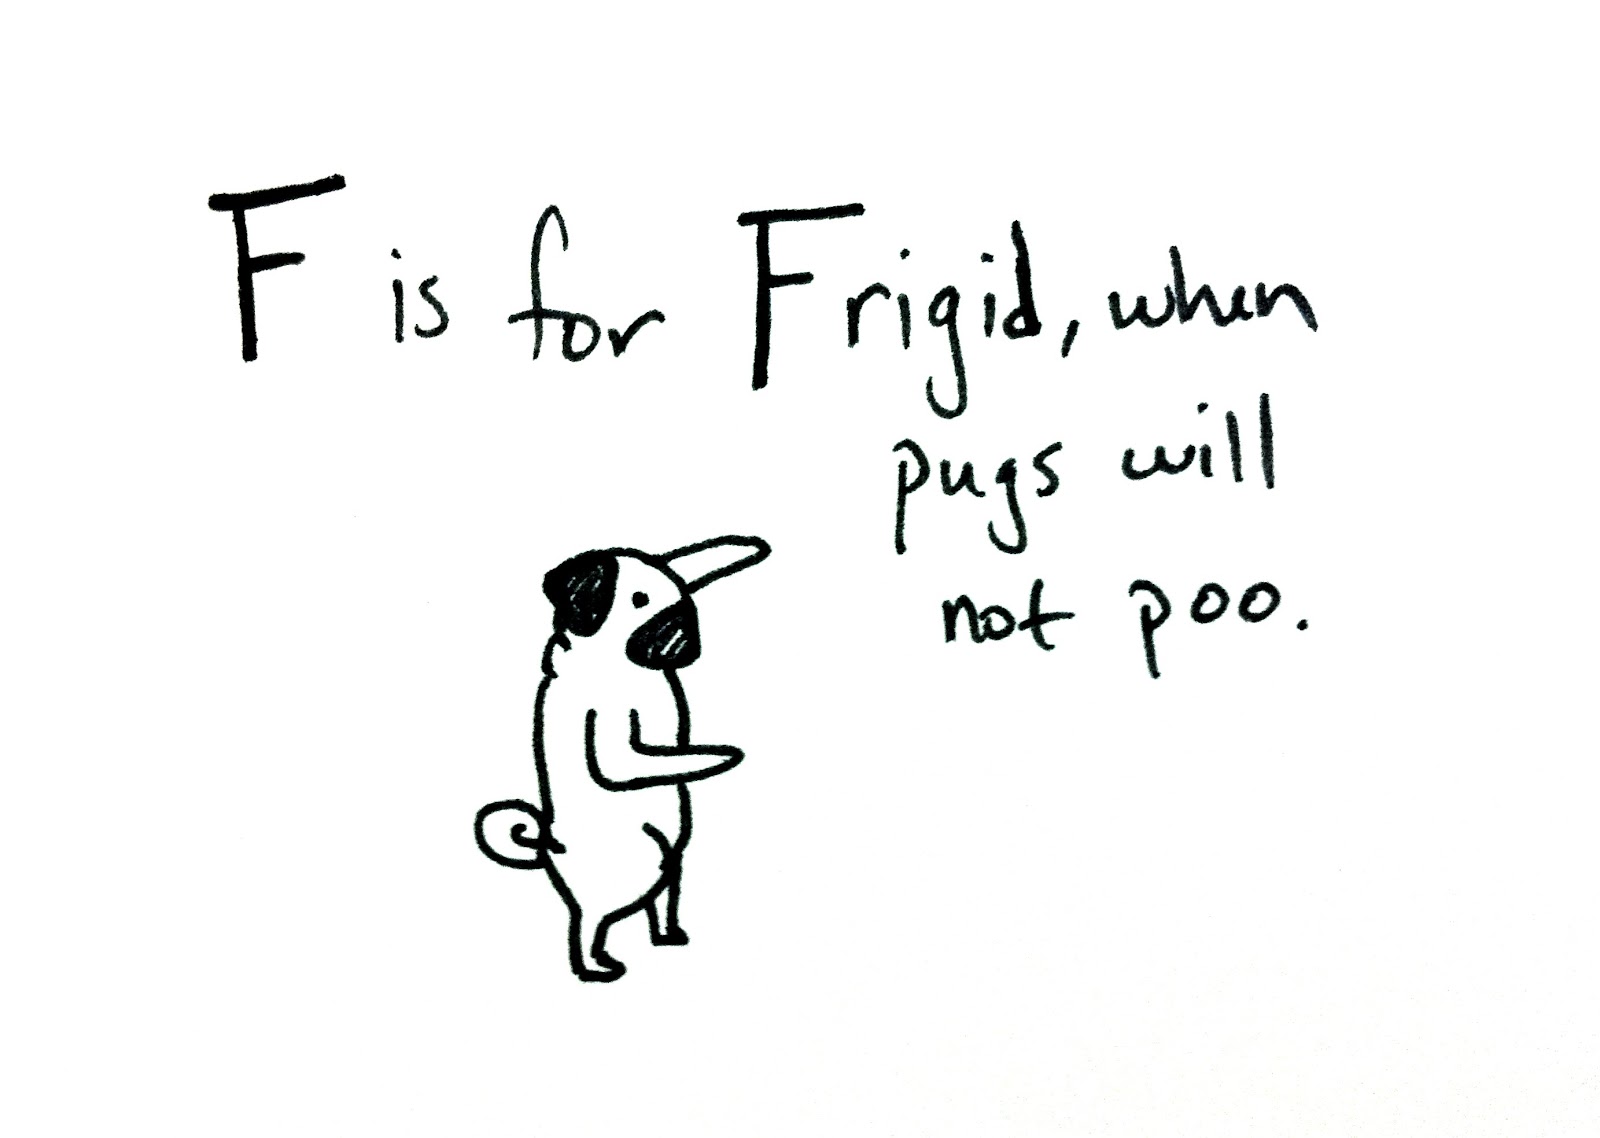 F is for Frigid, when
pugs will
not poo.